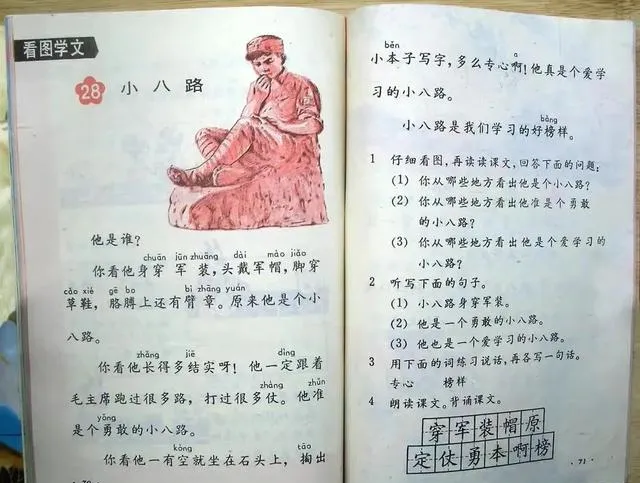 看图学文
28 小八路
他是谁？
chuān jūn zhuāng dài mào jiǎo
你看他身穿军装，头戴军帽，脚穿
cǎo xié gē bo bì zhāng yuán
草鞋，胳膊上还有臂章。原来他是个小
八路。
zhǎng jiē dìng
你看他长得多结实呀！他一定跟着
zhàng zhǔn
毛主席跑过很多路，打过很多仗。他准
yǒng
是个勇敢的小八路。
kòng tāo
你看他一有空就坐在石头上，掏出
70
běn a
小本子写字，多么专心啊！他真是个爱学
习的小八路。
bǎng
小八路是我们学习的好榜样。
1 仔细看图，再读读课文，回答下面的问题：
(1) 你从哪些地方看出他是个小八路？
(2) 你从哪些地方看出他准是个勇敢
的小八路？
(3) 你从哪些地方看出他是个爱学习的
小八路？
2 听写下面的句子。
(1) 小八路身穿军装。
(2) 他是一个勇敢的小八路。
(3) 他也是一个爱学习的小八路。
3 用下面的词练习说话，再各写一句话。
专心 榜样
4 朗读课文。背诵课文。
穿军装帽原
定仗勇本啊榜
71